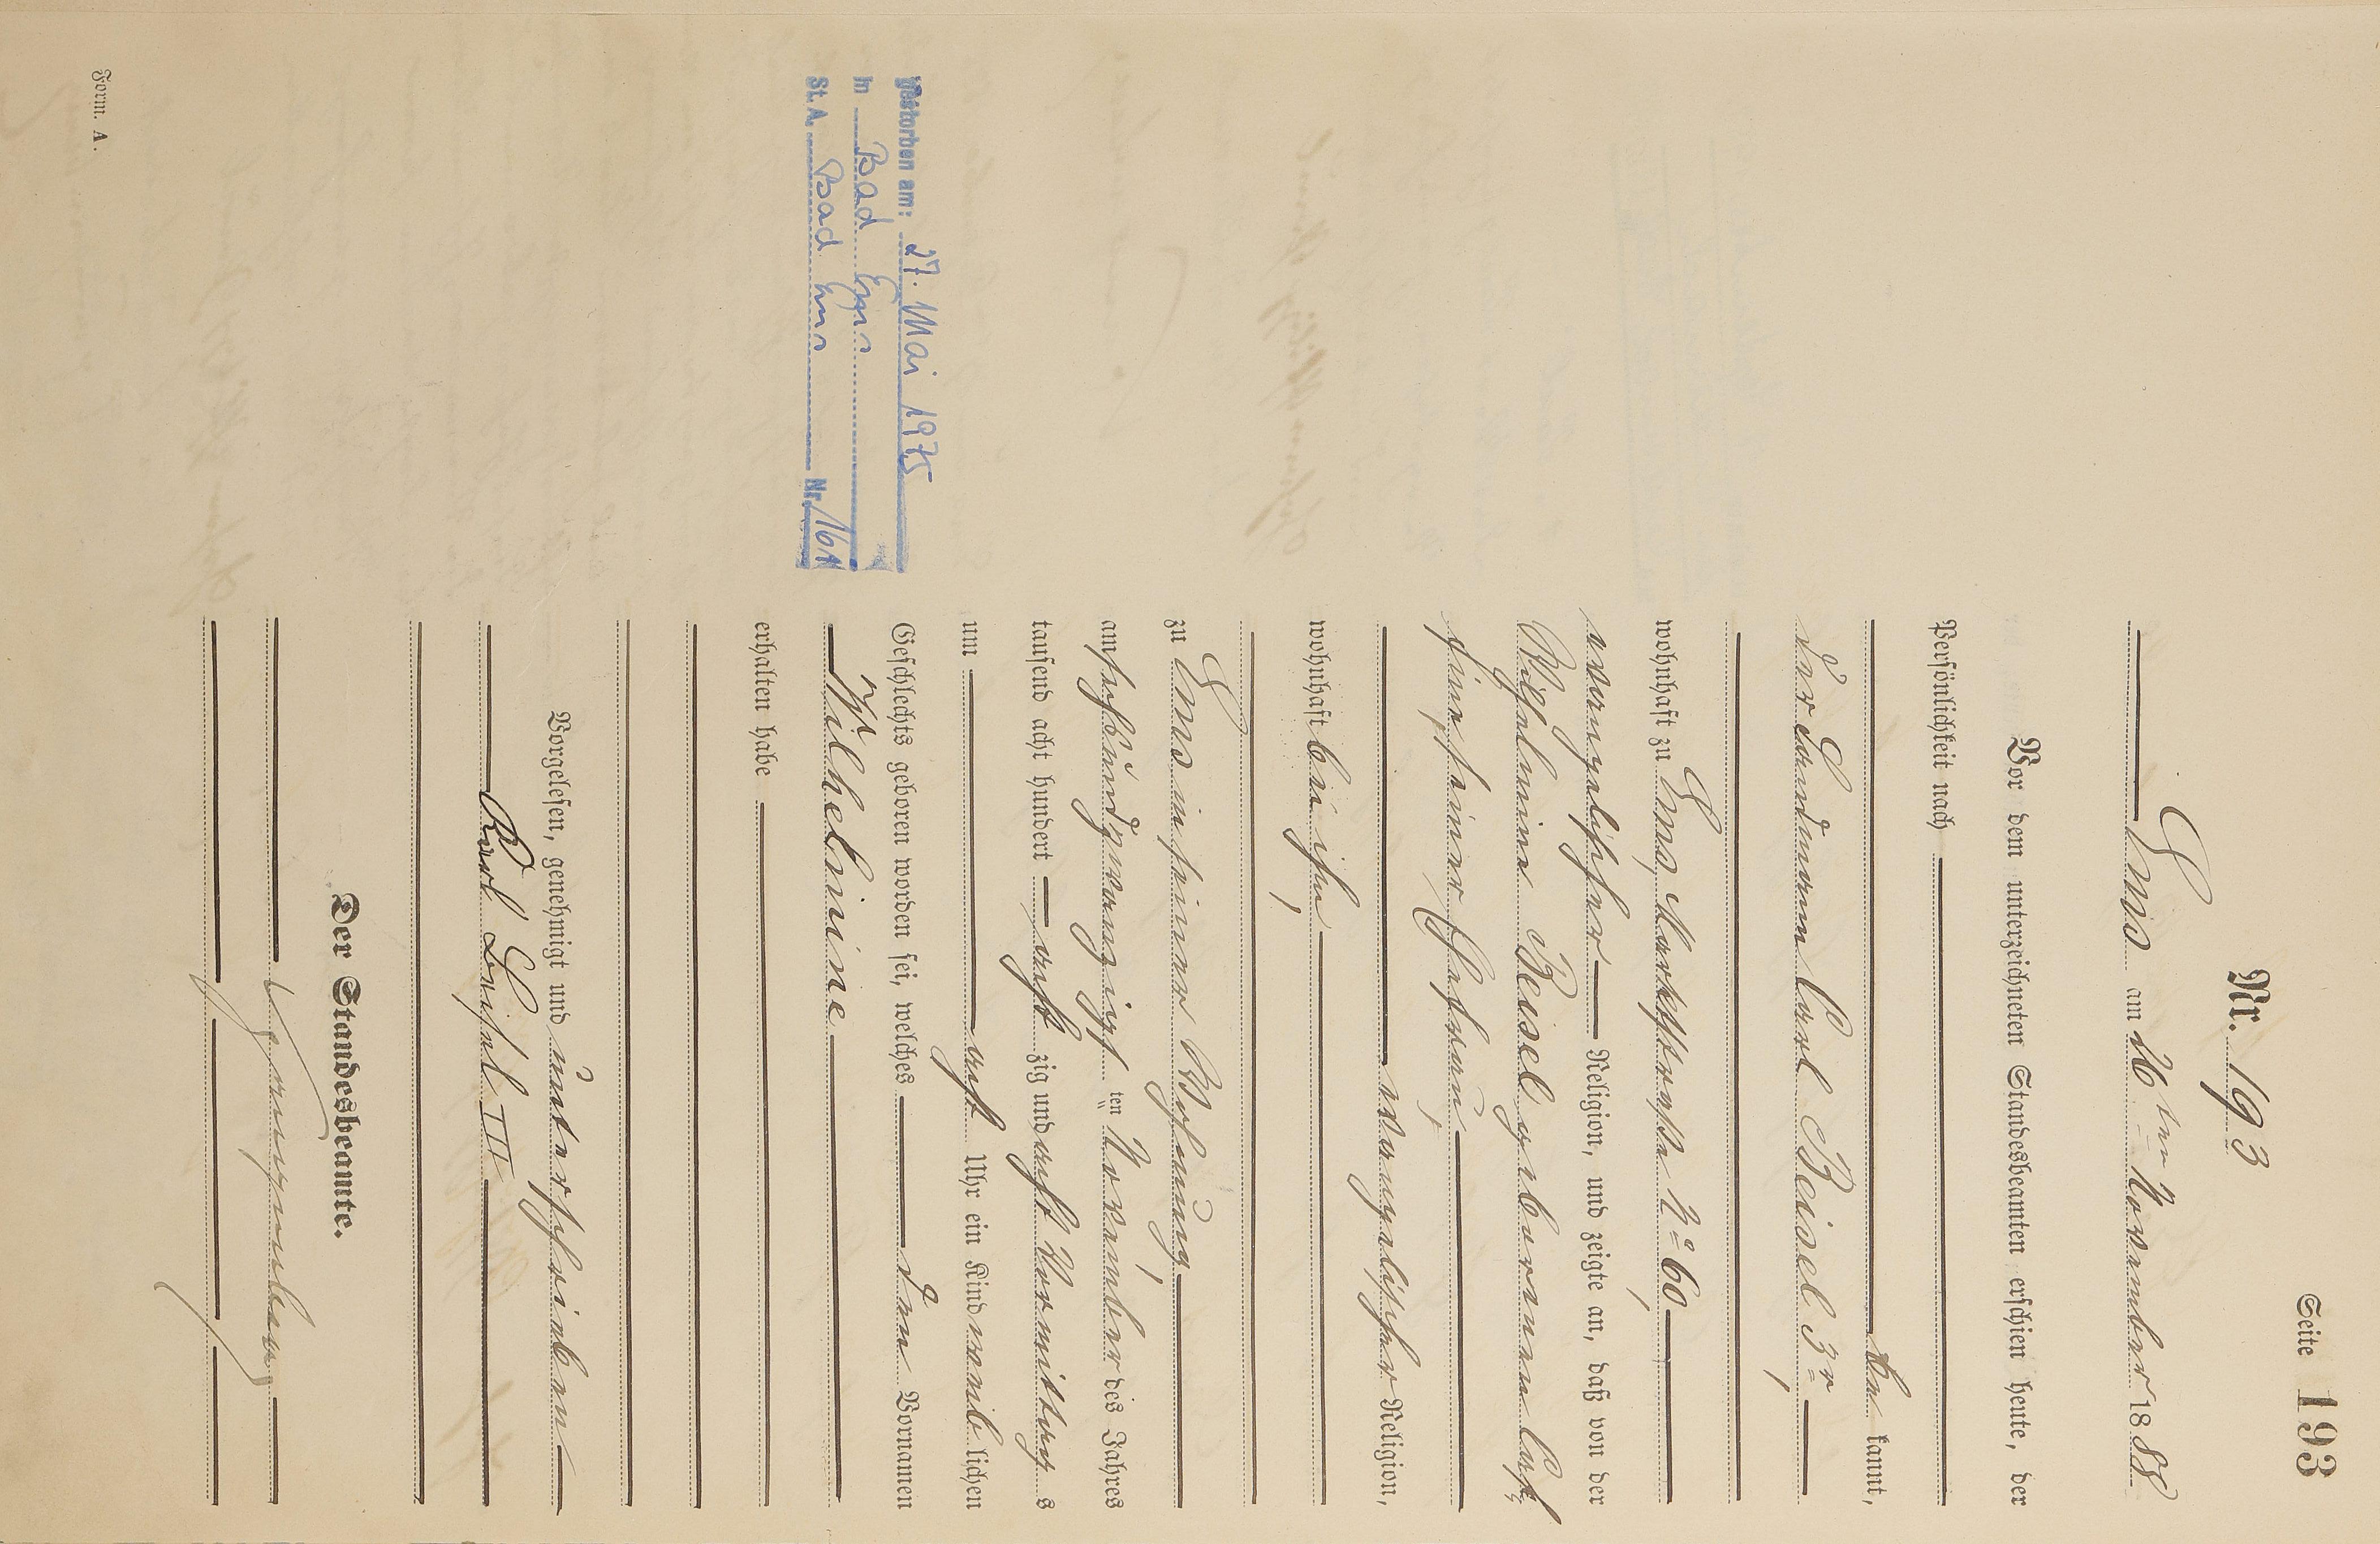 Seite 193
Nr. 193
Ems am 26ten November 1888
Vor dem unterzeichneten Standesbeamten erschien heute, der
Persönlichkeit nach
be kannt,
der Landmann Carl Beisel 3r
wohnhaft zu Ems, Marktstraße No 60
evangelischer Religion, und zeigte an, daß von der
Wilhelmine Beisel geborenen
seiner Ehefrau,
evangelischer Religion,
wohnhaft bei ihm,
zu Ems in seiner Wohnung,
am sechsundzwanzigsten November des Jahres
tausend acht hundert acht zig und acht Vormittag s
um acht Uhr ein Kind weib lichen
Geschlechts geboren worden sei, welches den Vornamen
Wilhelmine
erhalten habe
Vorgelesen, genehmigt und unterschrieben
Karl Beisel III
Der Standesbeamte.
Gestorben am: 27. Mai 1975
in Bad Ems
St. A. Bad Ems Nr. 161
Form. A.